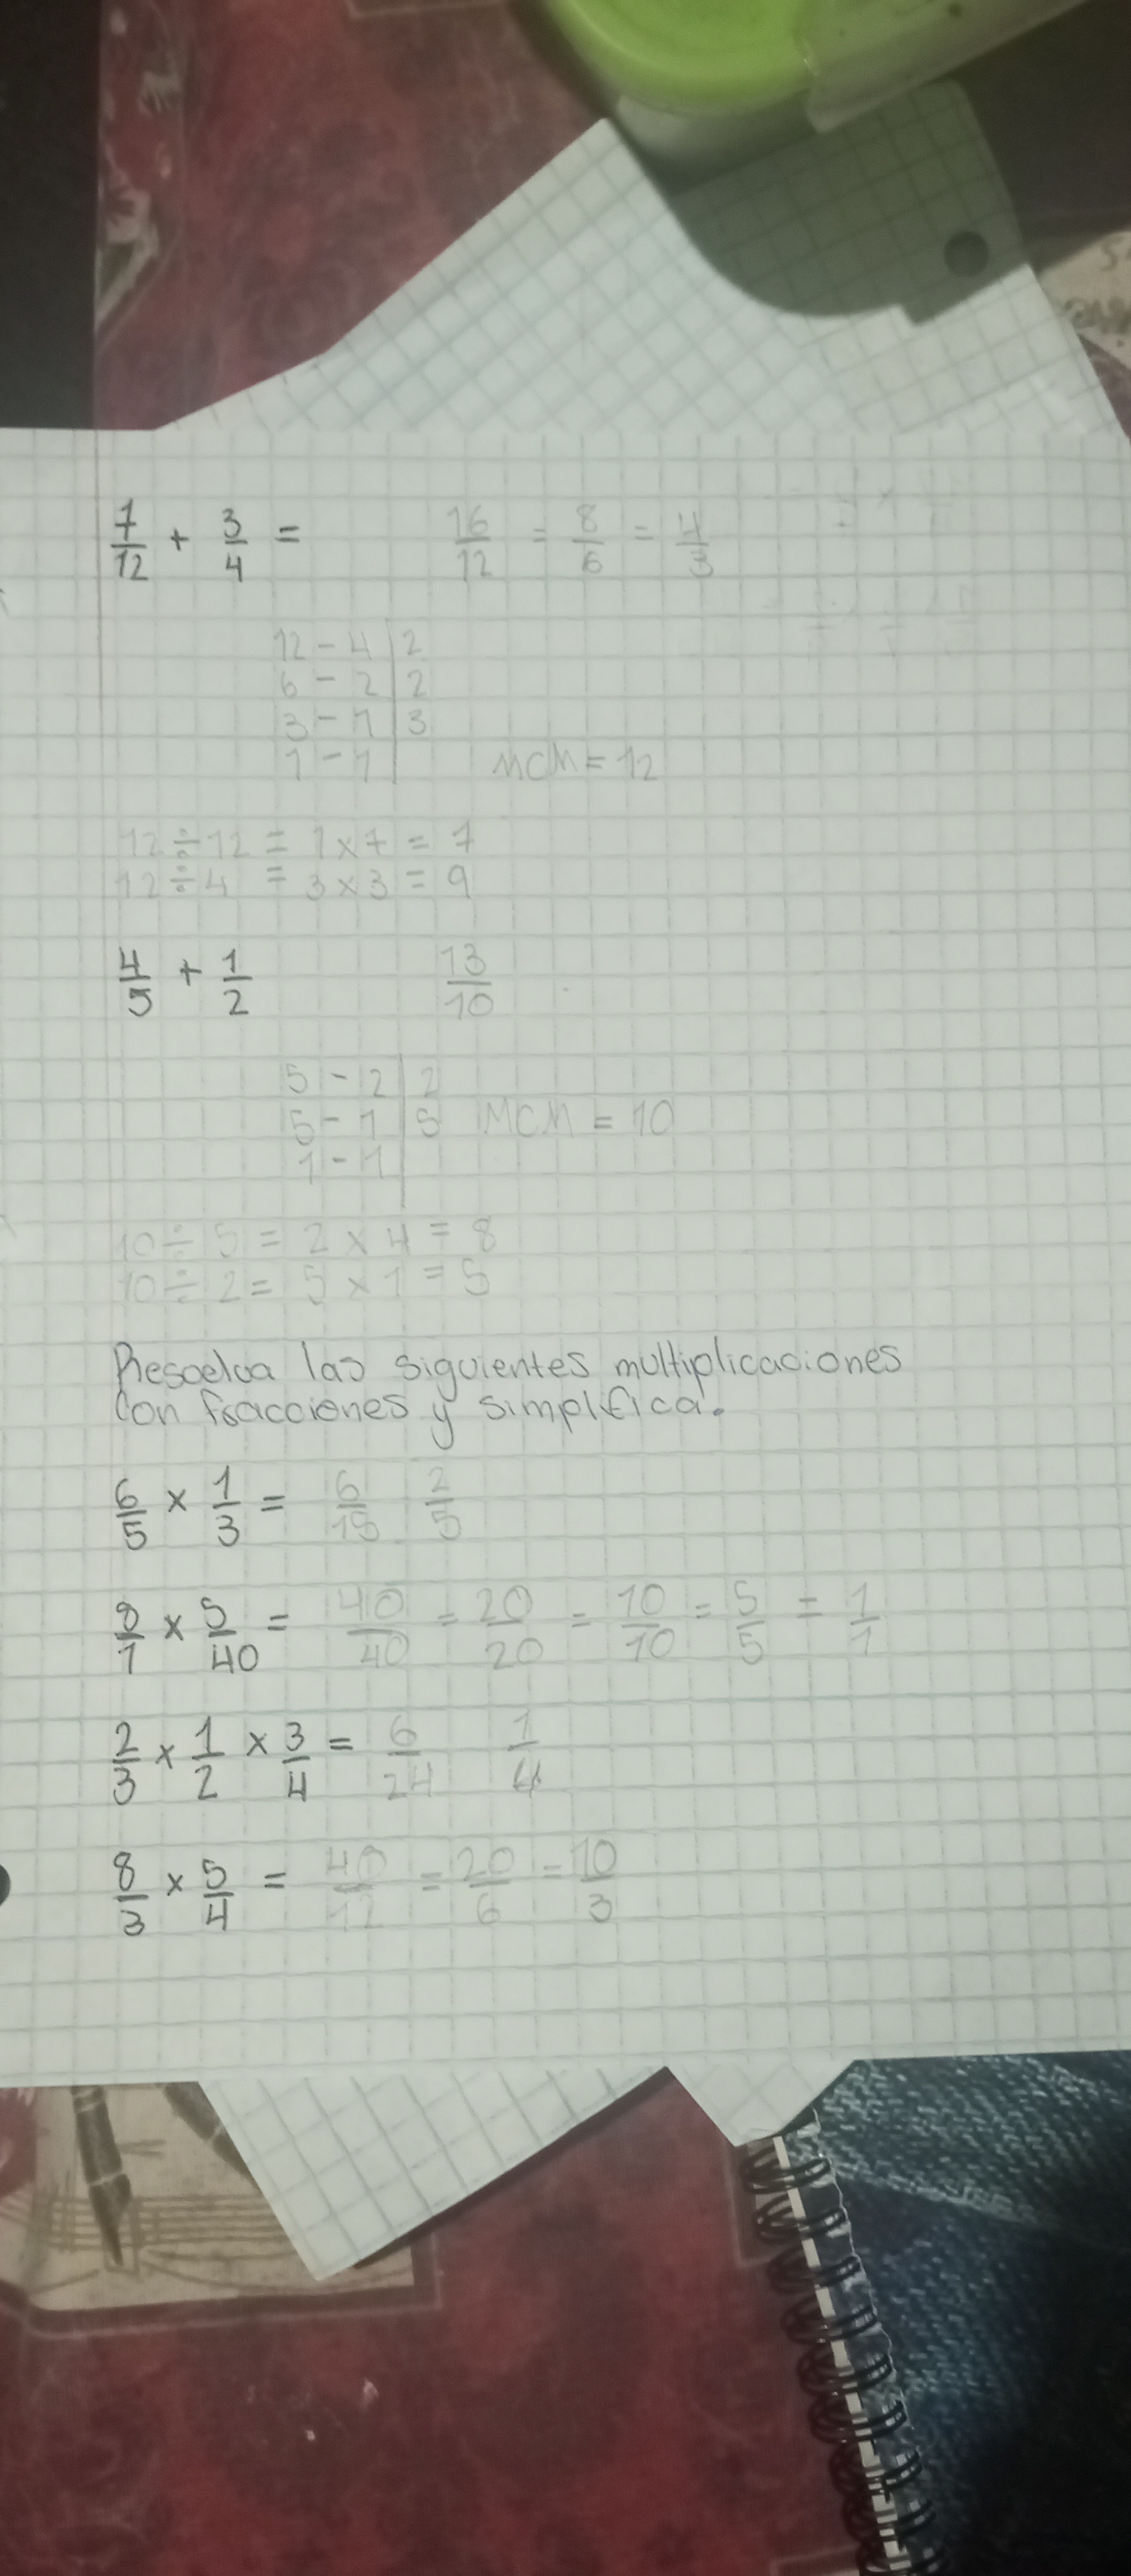 7/12 + 3/4 = 16/12 = 8/6 = 4/3
12 - 4 | 2
6 - 2 | 2
3 - 1 | 3
1 - 1 | MCM = 12
12 ÷ 12 = 1 x 7 = 7
12 ÷ 4 = 3 x 3 = 9
4/5 + 1/2 13/10
5 - 2 | 2
5 - 1 | 5 MCM = 10
1 - 1 |
10 ÷ 5 = 2 x 4 = 8
10 ÷ 2 = 5 x 1 = 5
Resuelva las siguientes multiplicaciones
con fracciones y simplifica.
6/5 x 1/3 = 6/15 2/5
8/1 x 5/40 = 40/40 = 20/20 = 10/10 = 5/5 = 1/1
2/3 x 1/2 x 3/4 = 6/24 1/4
8/3 x 5/4 = 40/12 = 20/6 = 10/3